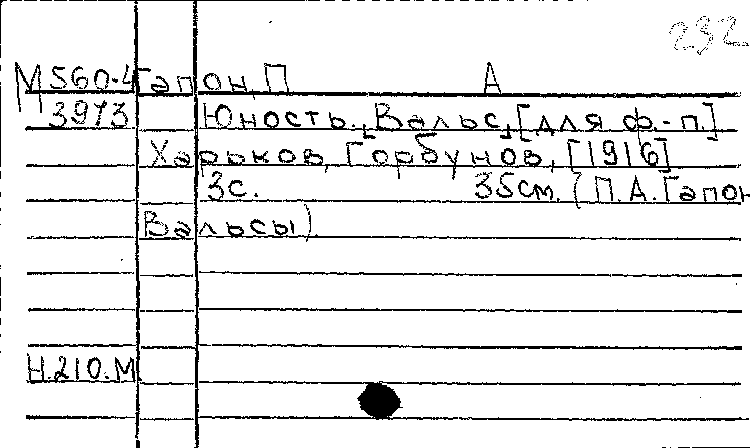 232
М 560-4 Гапон, П А
3973 Юность. Вальс, [для ф.-п.]
Харьков, Горбунов, [1916]
3с. 35см. (П.А.Гапон
Вальсы)
Н.210.М